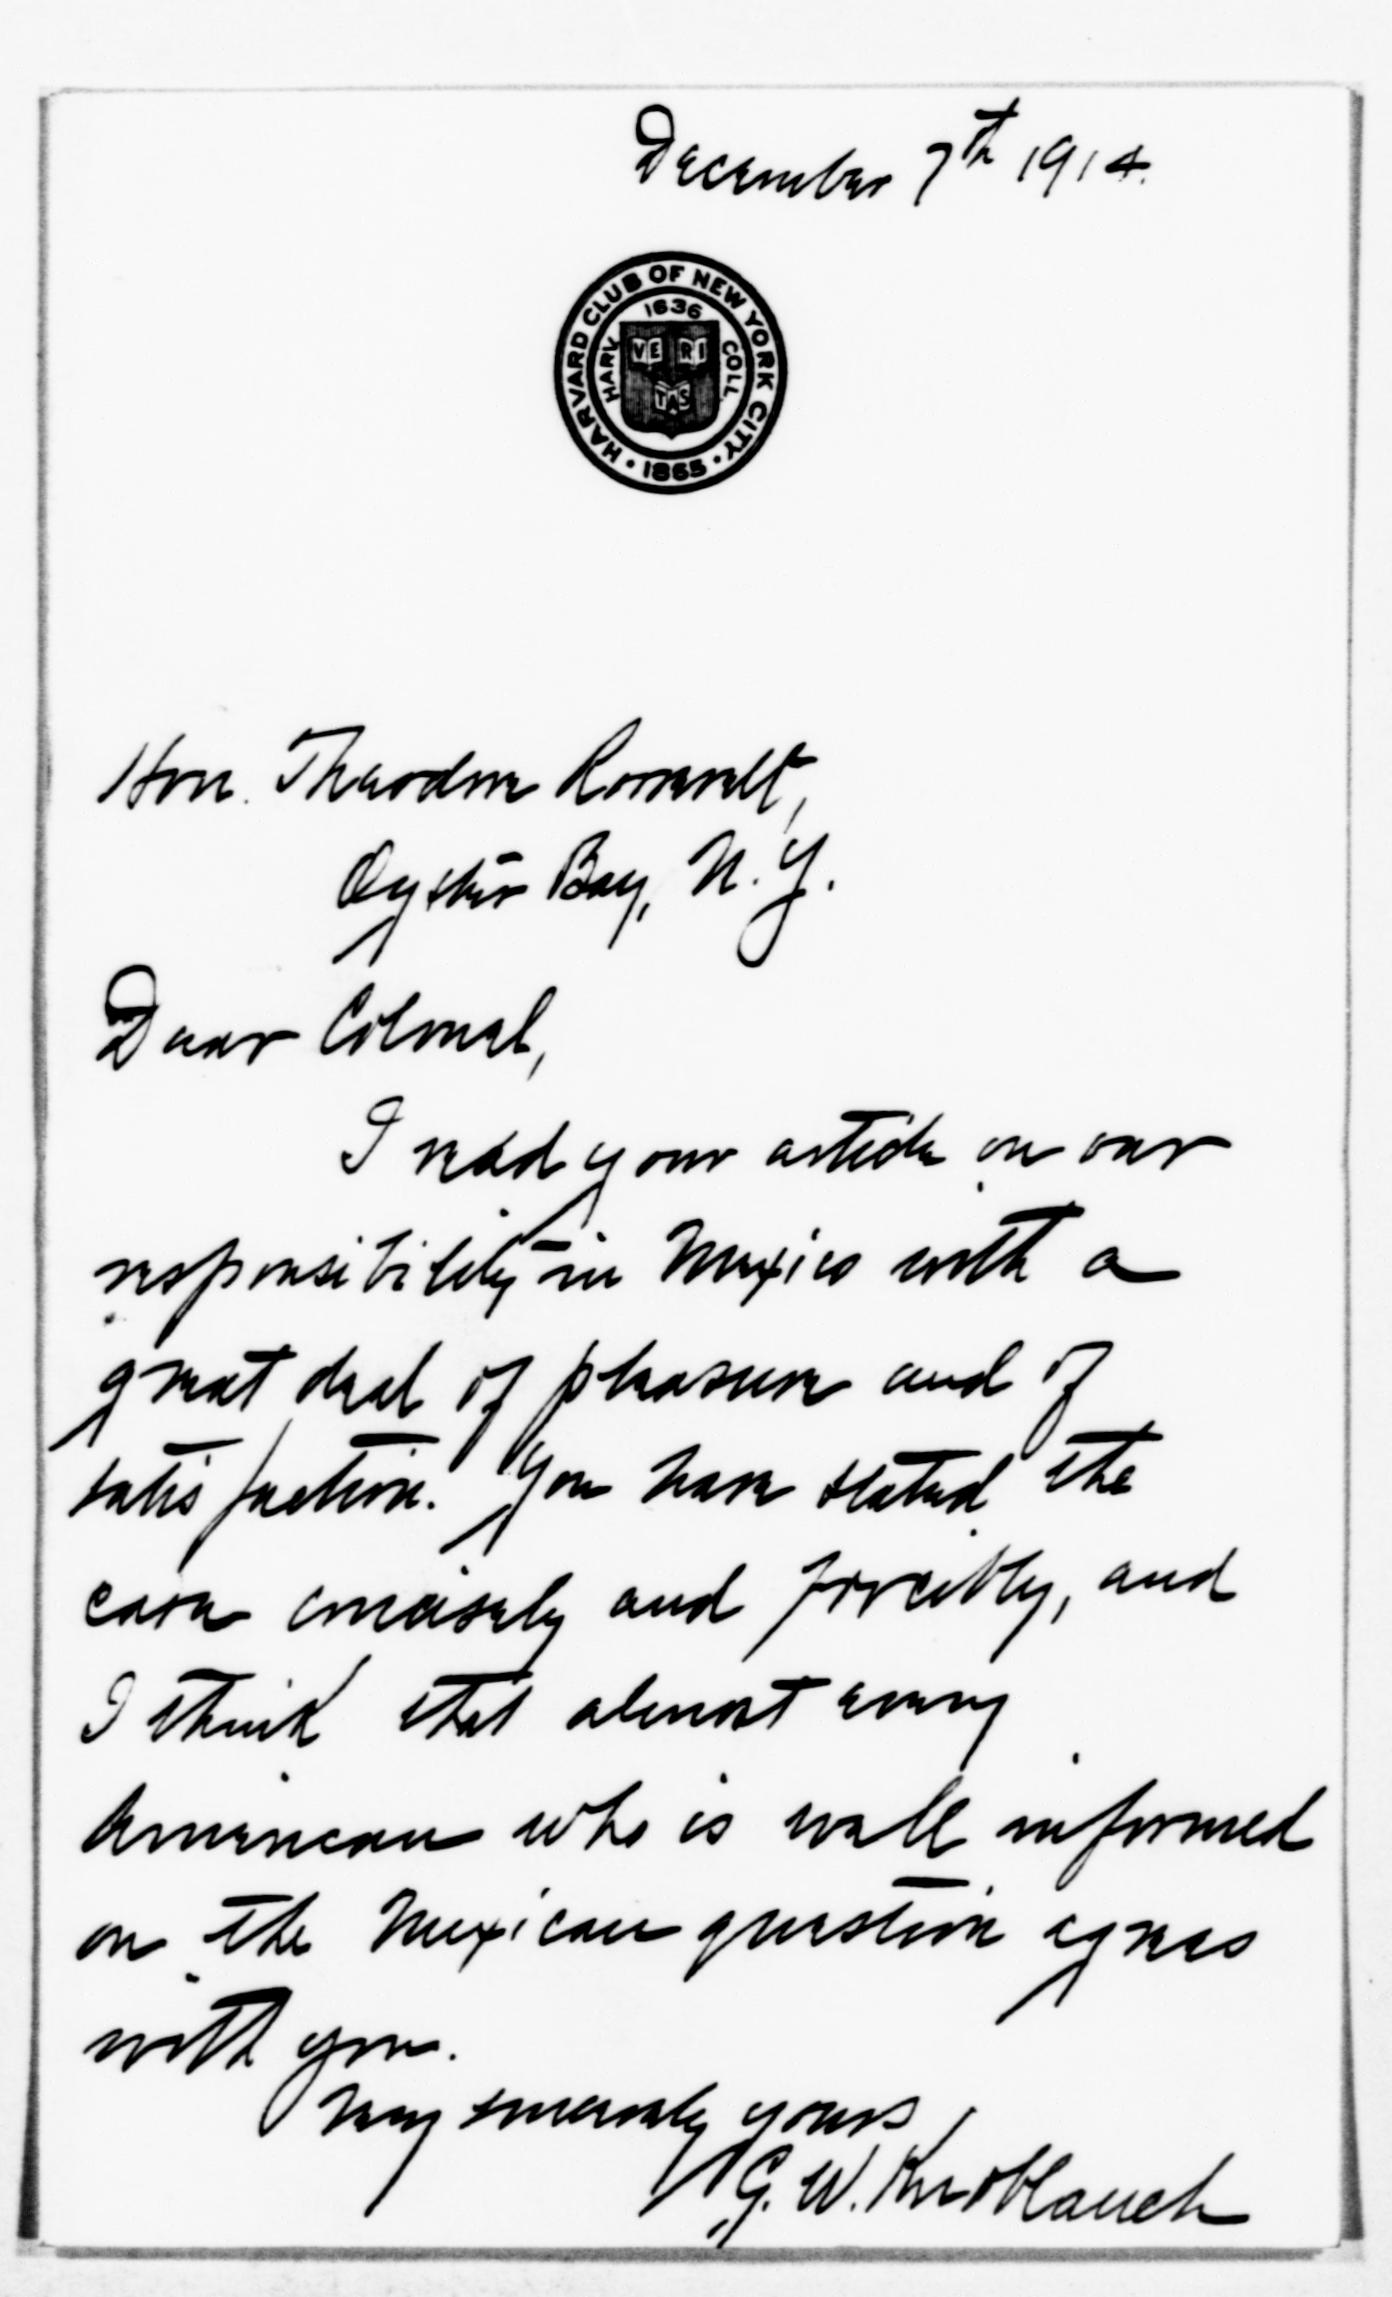 December 7th 1914.
HARVARD CLUB OF NEW YORK CITY
1636
HARV
VE RI
COLL
TAS
• 1865 •
Hon. Theodore Roosevelt,
Oyster Bay, N.Y.
Dear Colonel,
I read your article on our
responsibility in Mexico with a
great deal of pleasure and of
satisfaction. You have stated the
case concisely and forcibly, and
I think that almost every
American who is well informed
on the Mexican question agrees
with you.
Very sincerely yours,
G. W. Knoblauch